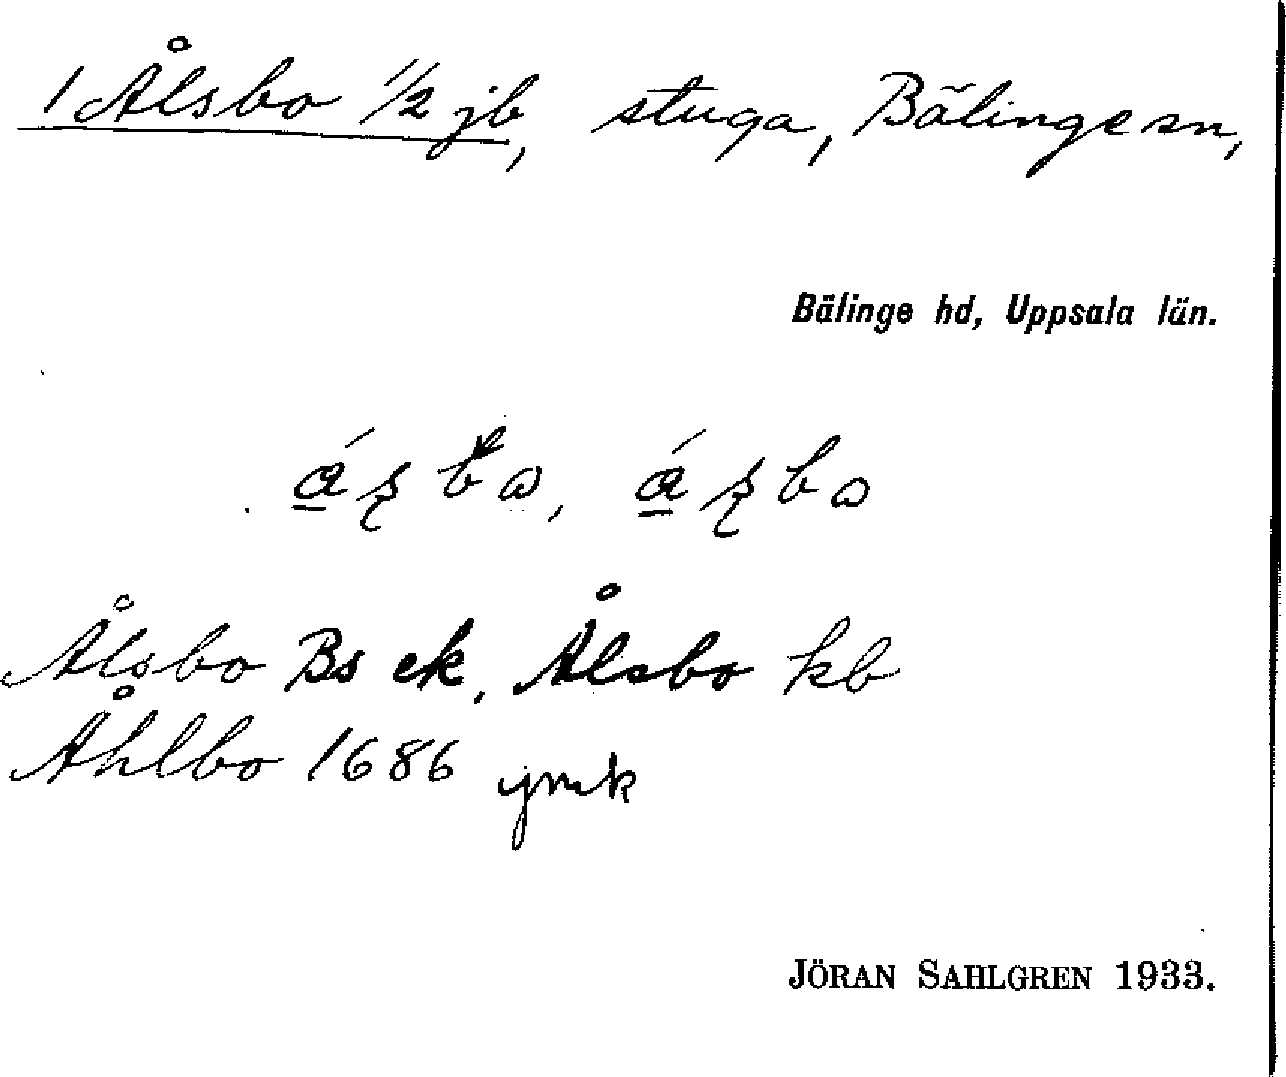 1 Ålsbo 1/2 jb, stuga, Bälinge sn,
Bälinge hd, Uppsala län.
Ålsbo Bs ek, Ålsbo kb
Åhlbo 1686 ymk
JÖRAN SAHLGREN 1933.